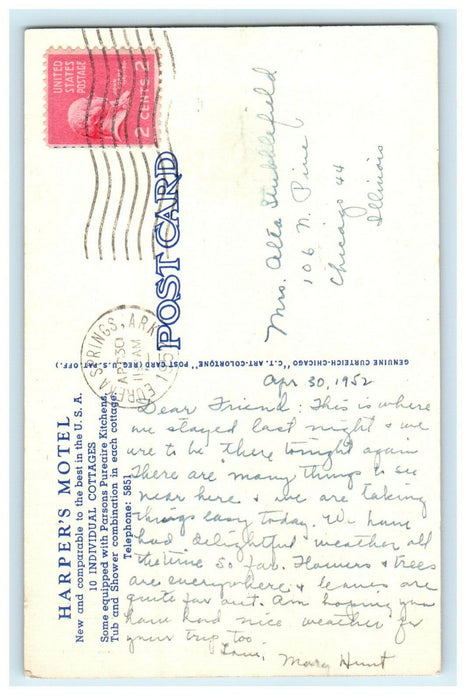 UNITED
STATES
POSTAGE
2 CENTS 2
EUREKA SPRINGS, ARK.
APR 30
AM
POST CARD
Mrs. Alta Stubblefield
106 N. Pine
Chicago 44
Illinois
GENUINE CURTEICH-CHICAGO "C.T. ART-COLORTONE" POST CARD (REG. U.S. PAT. OFF.)
HARPER'S MOTEL
New and comparable to the best in the U. S. A.
10 INDIVIDUAL COTTAGES
Some equipped with Parsons Pureaire Kitchens,
Tub and Shower combination in each cottage
Telephone: 5851
Apr 30, 1952
Dear Friend: This is where
we stayed last night & we
are to be there tonight again
There are many things to see
near here & we are taking
things easy today. We have
had delightful weather all
the time so far. Flowers & trees
are everywhere & leaves are
quite far out. Am hoping you
have had nice weather for
your trip too.
Love, Mary Hunt